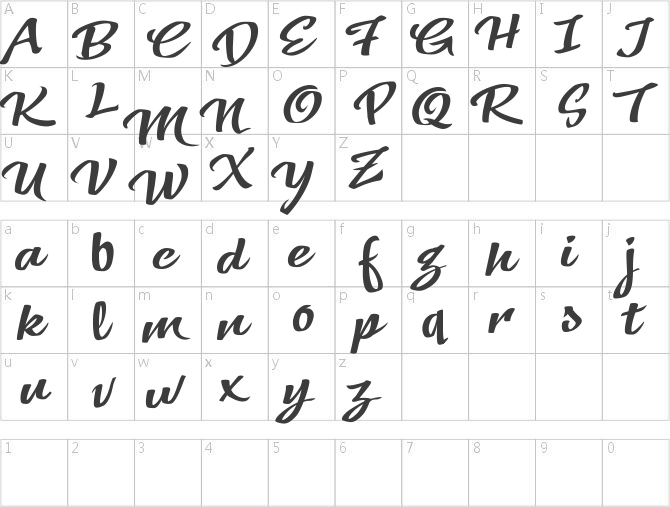 A B C D E F G H I J
A B C D E F G H I J
K L M N O P Q R S T
K L M N O P Q R S T
U V W X Y Z
U V W X Y Z
a b c d e f g h i j
a b c d e f g h i j
k l m n o p q r s t
k l m n o p q r s t
u v w x y z
u v w x y z
1 2 3 4 5 6 7 8 9 0